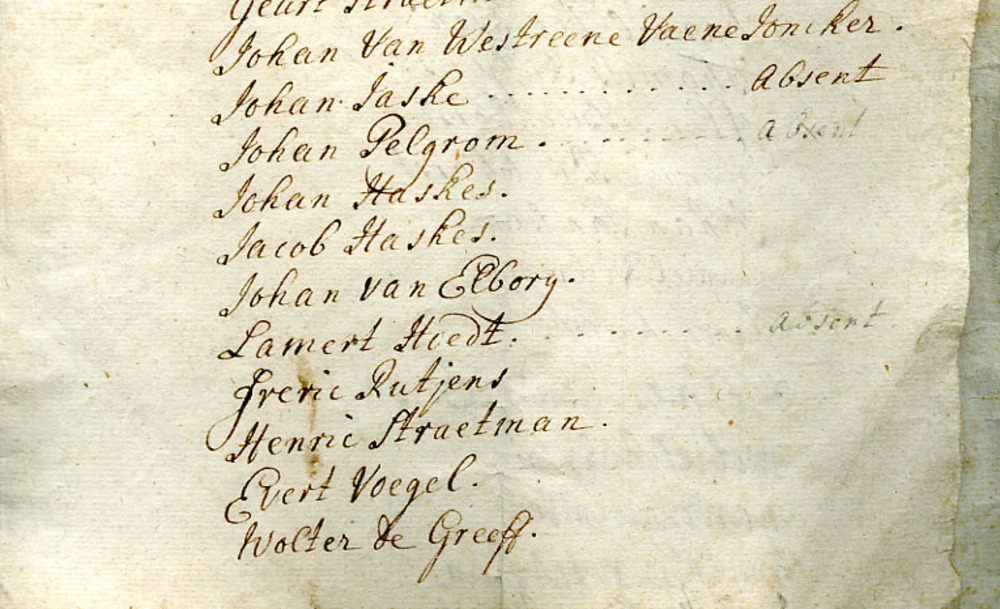 Geurt
Johan Van Westreene Vaene Joncker.
Johan Jaske ............. Absent
Johan Pelgrom. .......... absent
Johan Haskes.
Jacob Haskes.
Johan van Elborg.
Lamert Hiedt. .......... absent
Freric Rutjens
Henric Straetman.
Evert Voegel.
Wolter de Greeff.